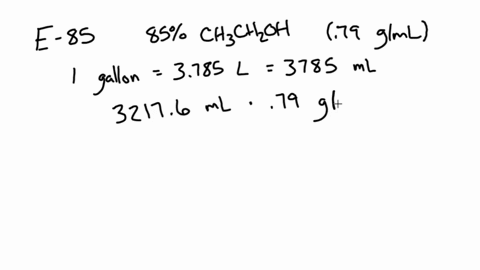 E-85 85% CH3CH2OH (.79 g/mL)
1 gallon = 3.785 L = 3785 mL
3217.6 mL · .79 g/